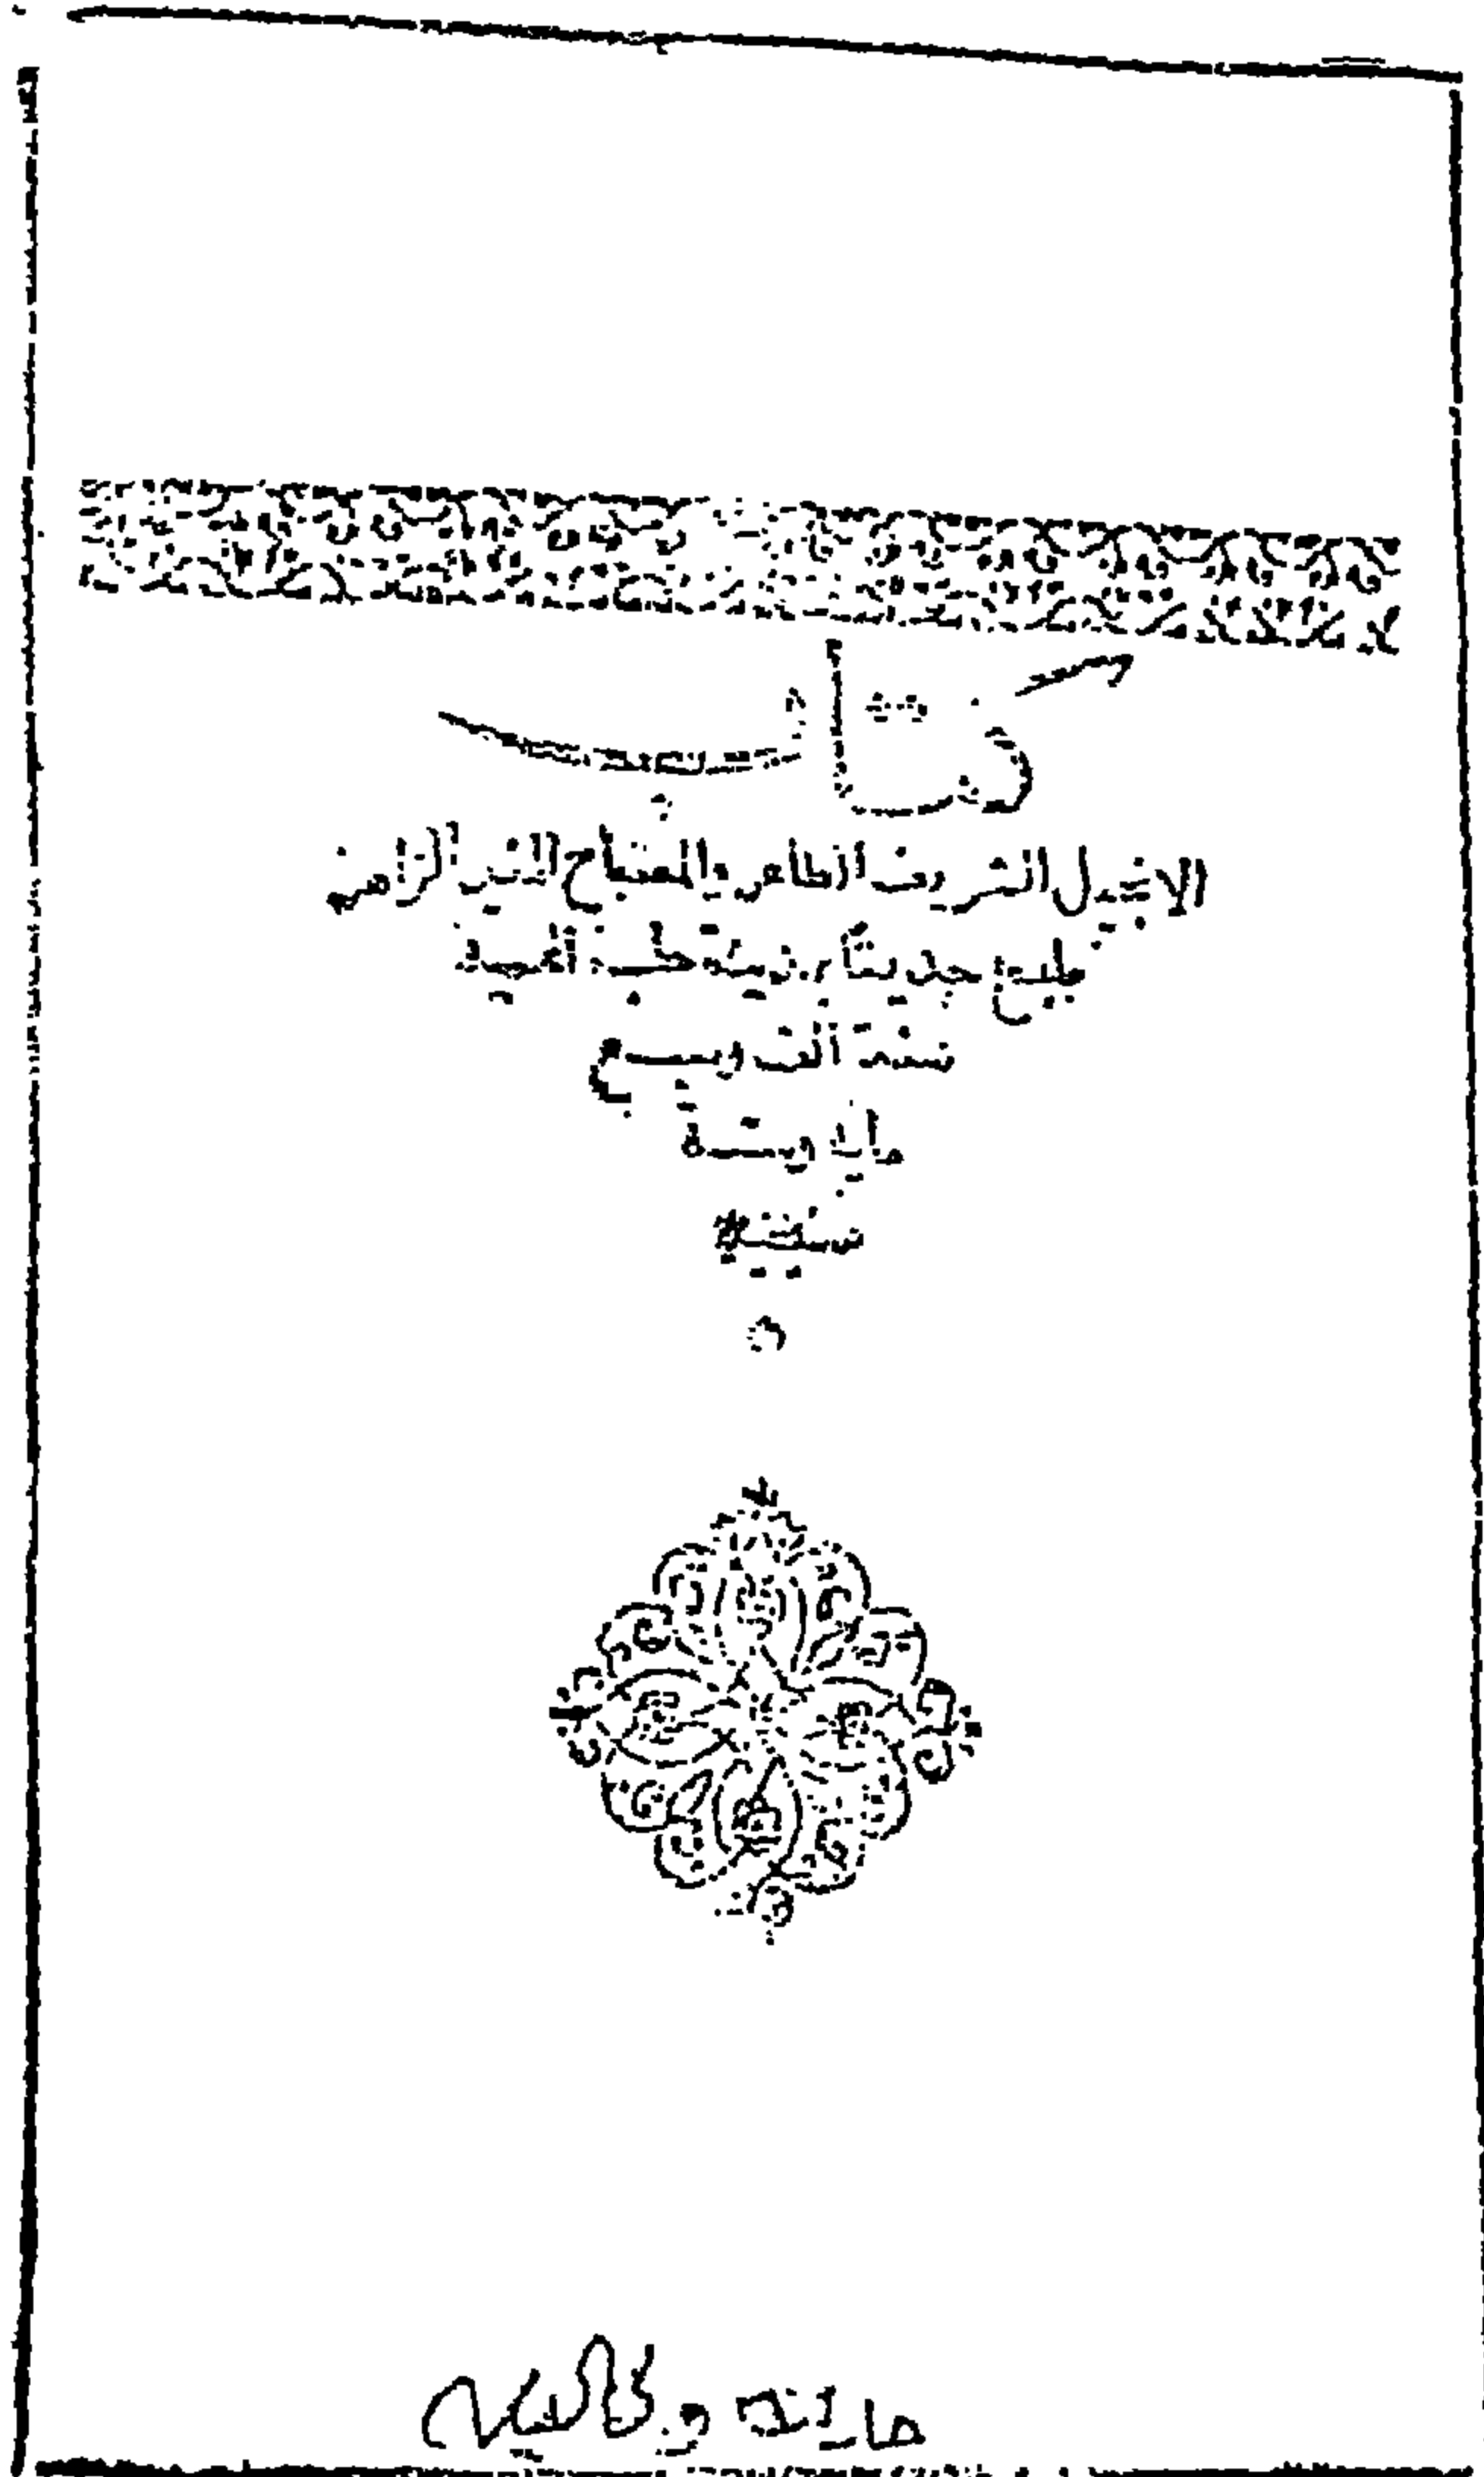 كتاب
الانجيل الشريف الطاهر والمصباح المنير الزاهر
طبع حديثًا بمدينة حلب المحمية
سنة الف وسبع
ماية وستة
مسيحية